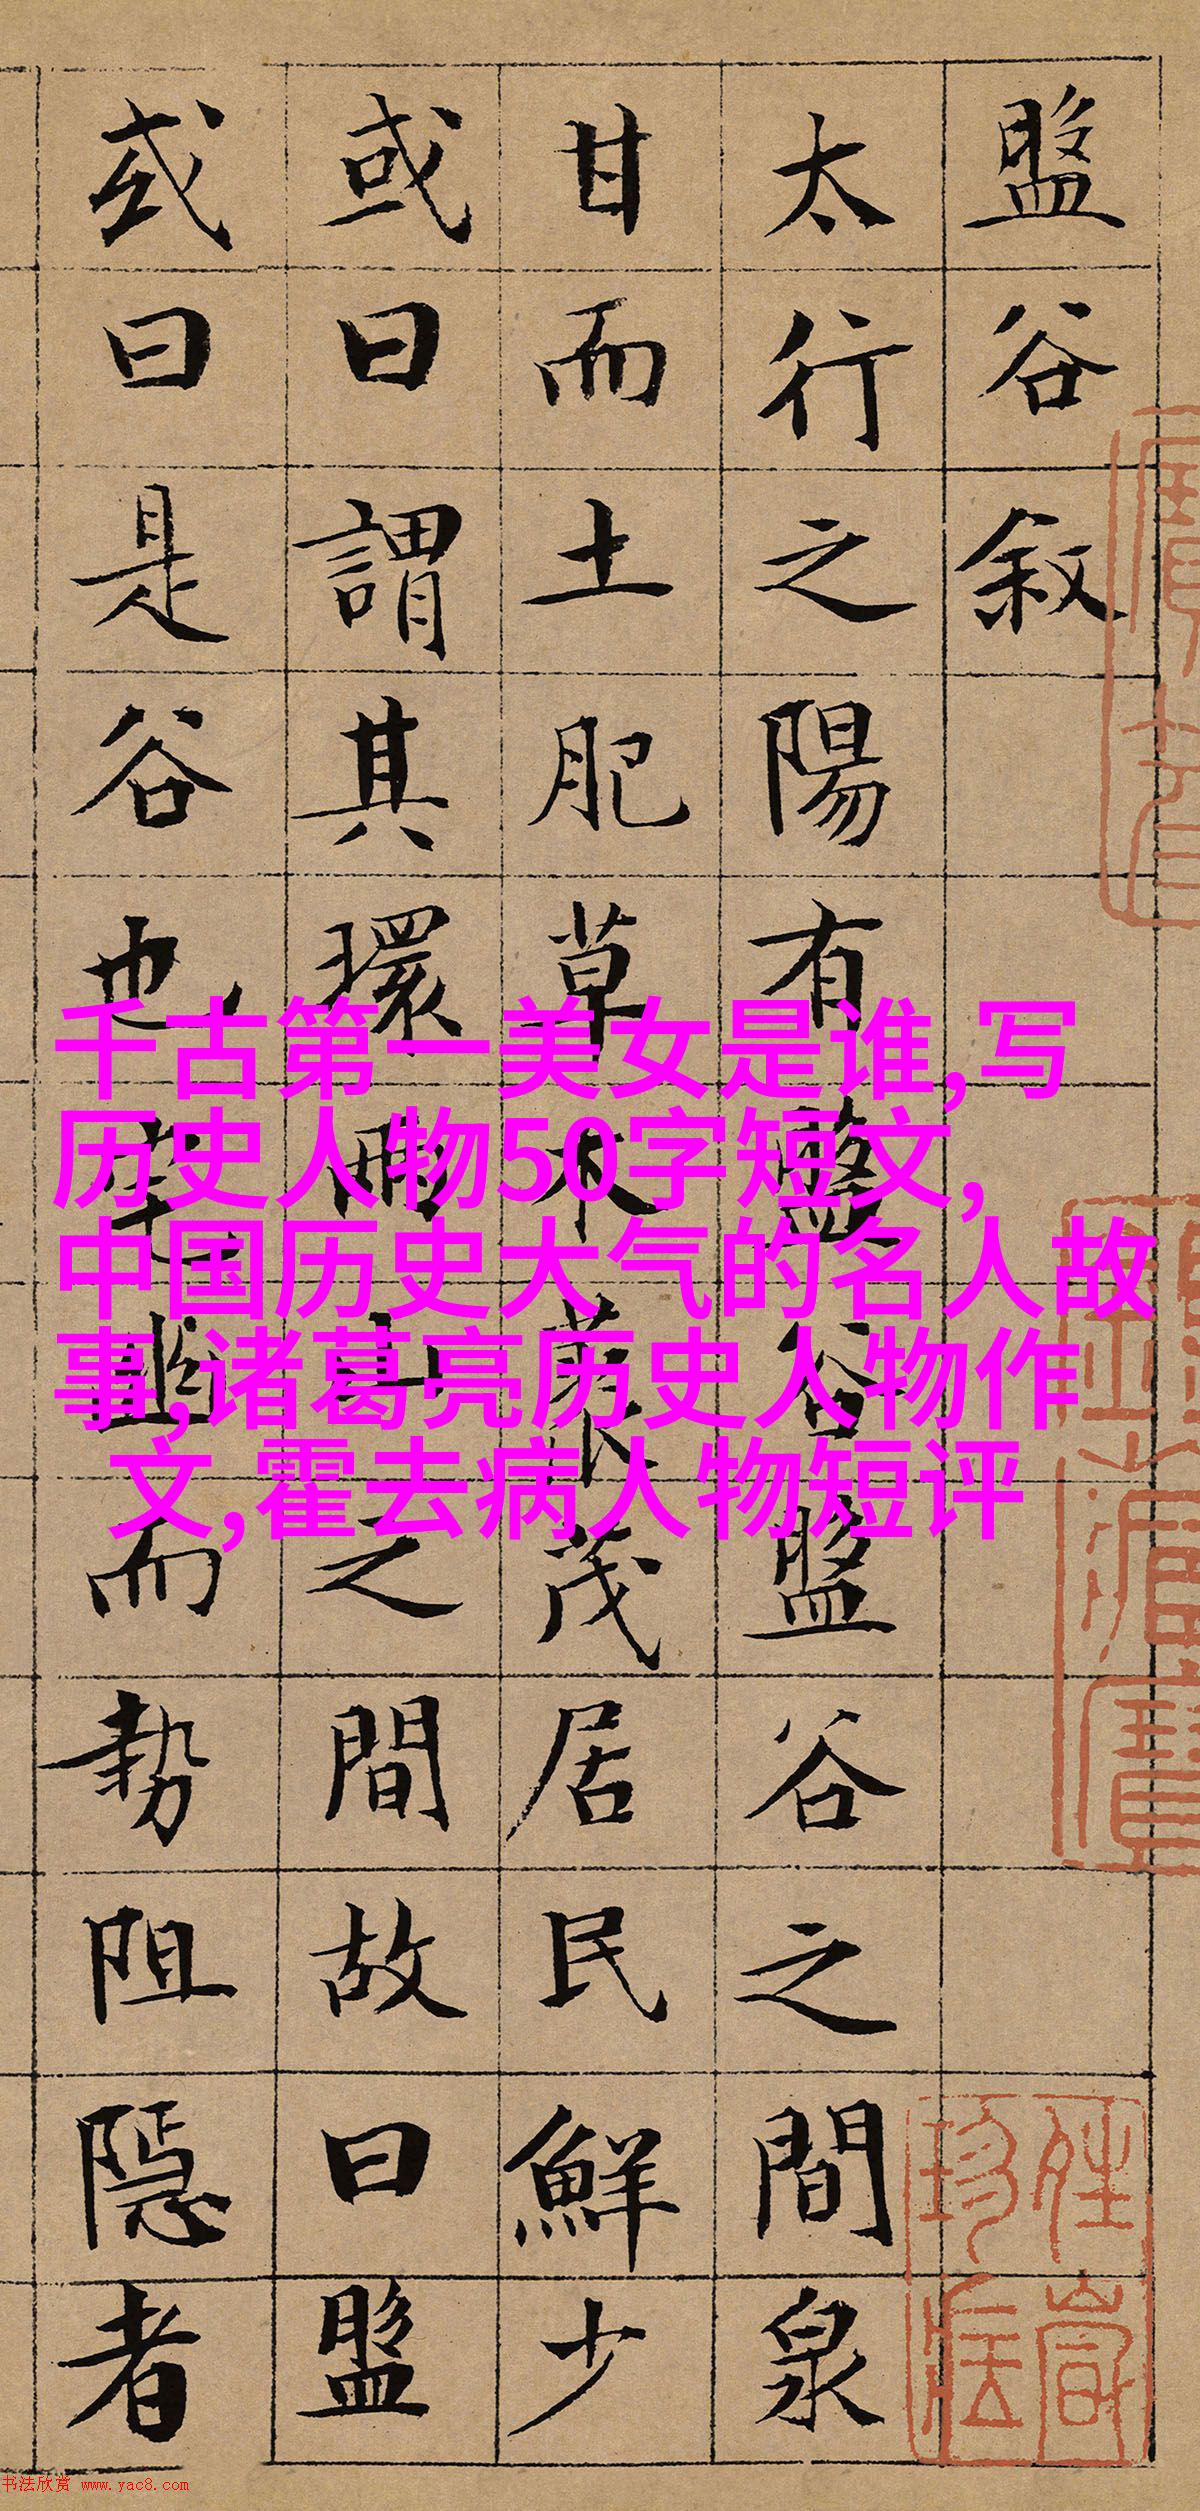 盤谷敘
太行之陽有盤谷盤谷之間泉
甘而土肥草木藂茂居民鮮少
或曰謂其環兩山之間故曰盤
或曰是谷也宅幽而勢阻隱者
千古第一美女是谁,写
历史人物50字短文,
中国历史大气的名人故
事,诸葛亮历史人物作
文,霍去病人物短评
书法欣赏 www.yac8.com